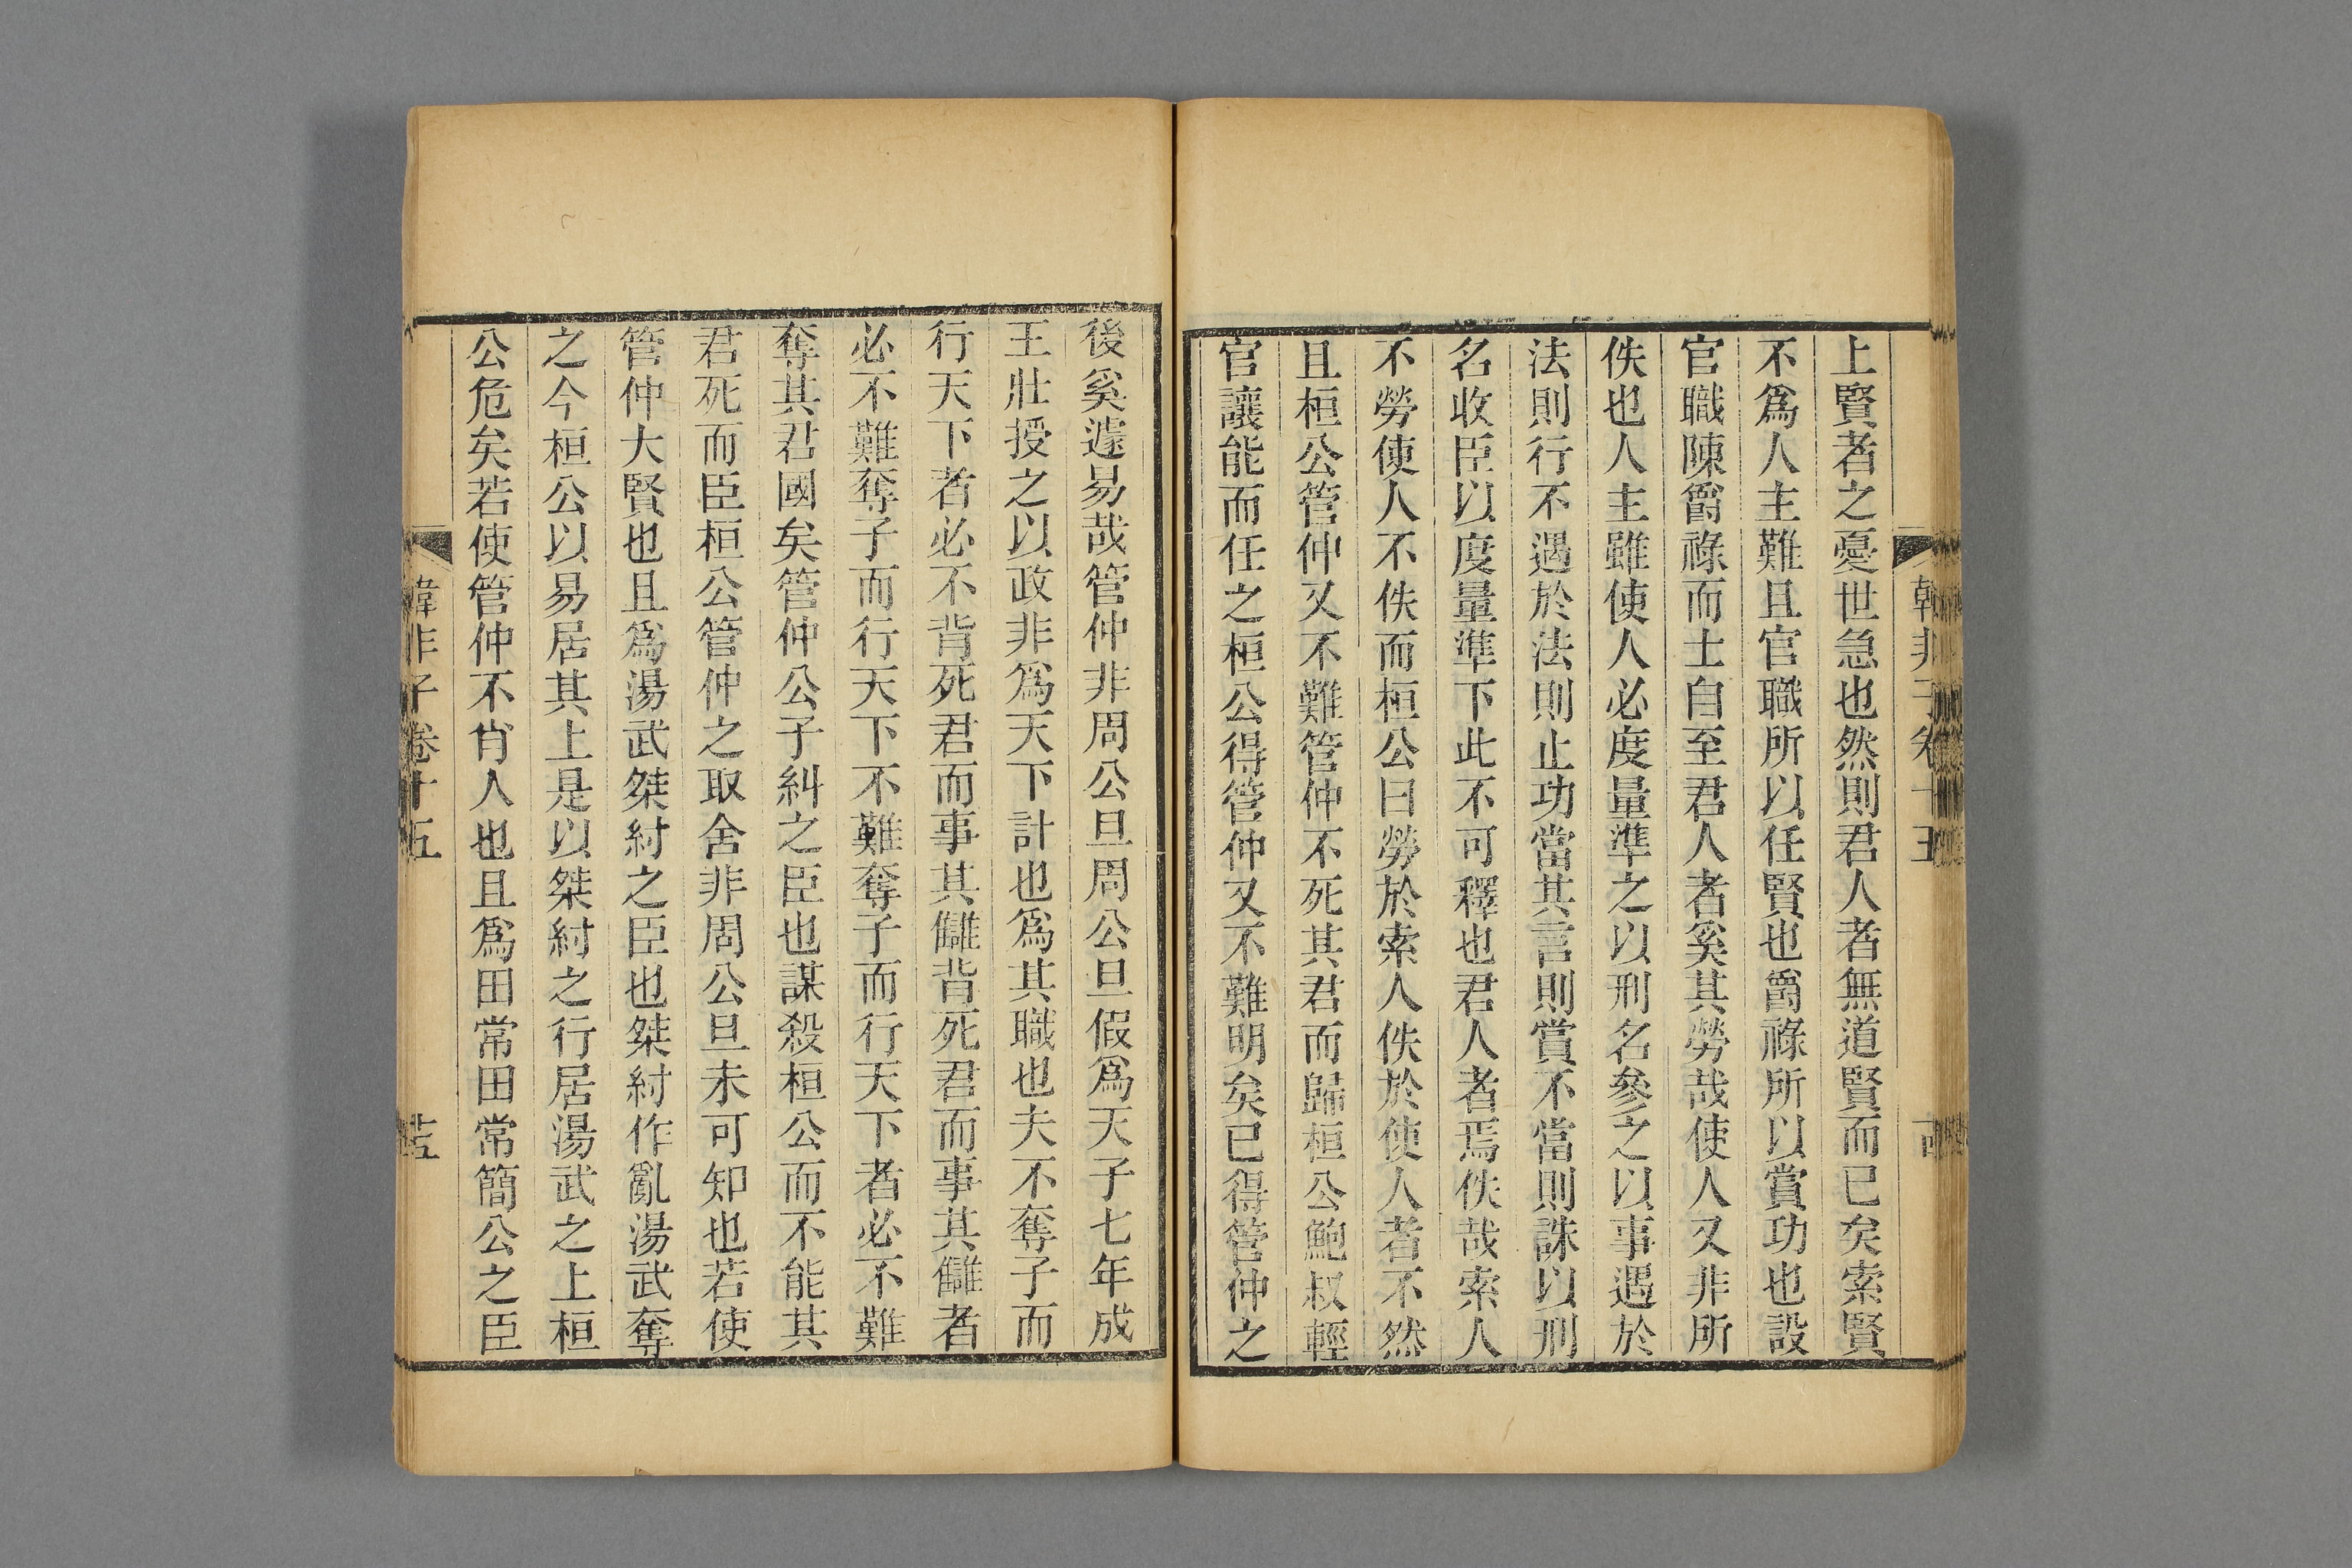 韓非子卷十五
上賢者之憂世急也然則君人者無道賢而已矣索賢
不爲人主難且官職所以任賢也爵祿所以賞功也設
官職陳爵祿而士自至君人者奚其勞哉使人又非所
佚也人主雖使人必度量準之以刑名參之以事遇於
法則行不遇於法則止功當其言則賞不當則誅以刑
名收臣以度量準下此不可釋也君人者焉佚哉索人
不勞使人不佚而桓公曰勞於索人佚於使人者不然
且桓公管仲又不難管仲不死其君而歸桓公鮑叔輕
官讓能而任之桓公得管仲又不難明矣已得管仲之
後奚遽易哉管仲非周公旦周公旦假爲天子七年成
王壯授之以政非爲天下計也爲其職也夫不奪子而
行天下者必不背死君而事其讎背死君而事其讎者
必不難奪子而行天下不難奪子而行天下者必不難
奪其君國矣管仲公子糾之臣也謀殺桓公而不能其
君死而臣桓公管仲之取舍非周公旦未可知也若使
管仲大賢也且爲湯武桀紂之臣也桀紂作亂湯武奪
之今桓公以易居其上是以桀紂之行居湯武之上桓
公危矣若使管仲不肖人也且爲田常田常簡公之臣
韓非子卷十五